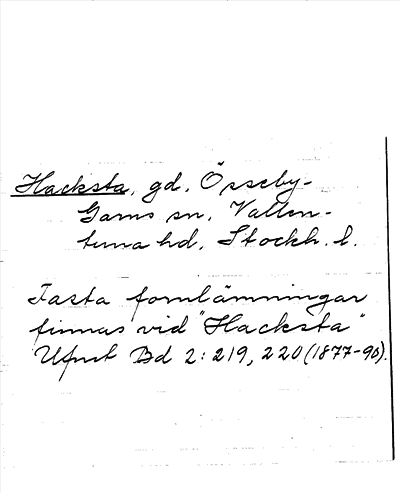 Hacksta, gd, Össeby-
Garns sn, Vallen-
tuna hd, Stockh. l.
Fasta fornlämningar
finnas vid "Hacksta"
Ufmt Bd 2: 219, 220 (1877-90).